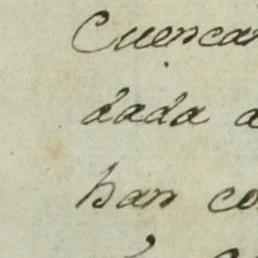 Cuencan
dada a
han co